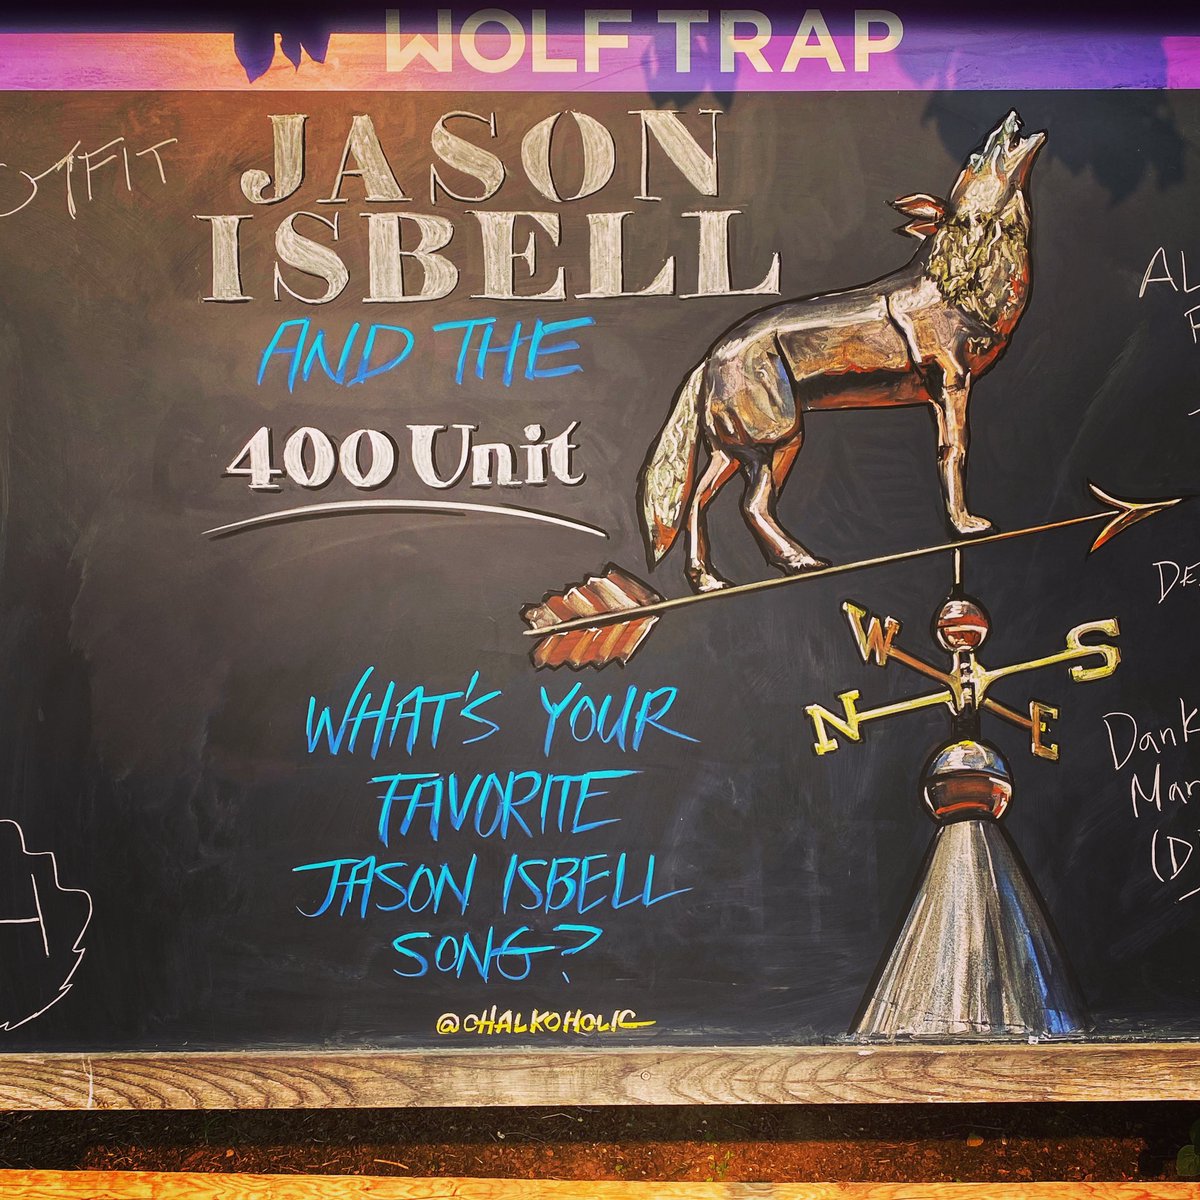 WOLF TRAP
JASON
ISBELL
AND THE
400 Unit
WHAT'S YOUR
FAVORITE
JASON ISBELL
SONG?
@CHALKOHOLIC
W
S
N
E